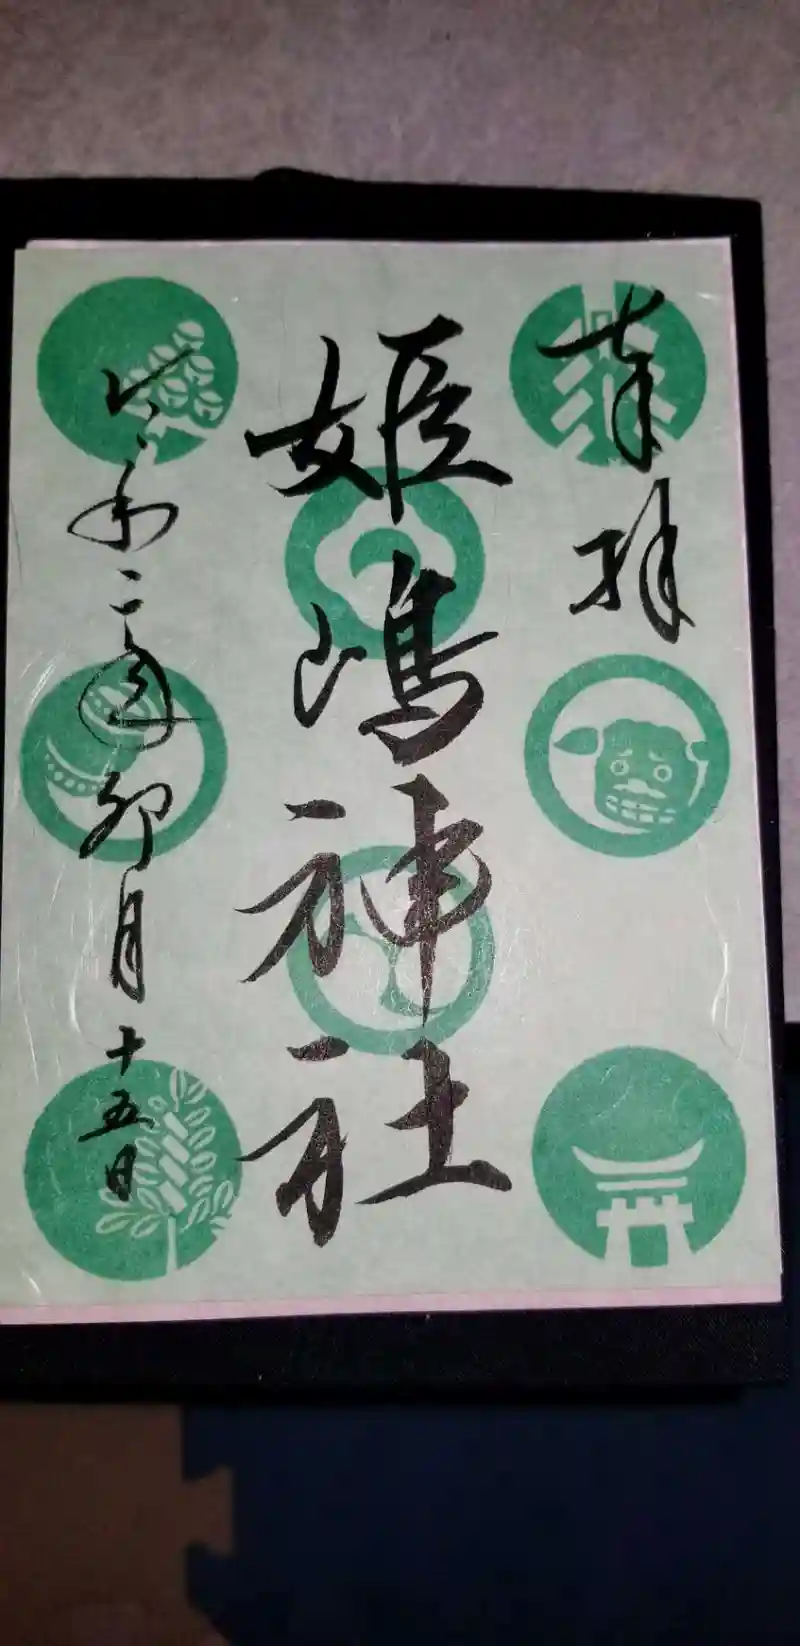 奉拝
姫嶋神社
令和二年卯月十五日